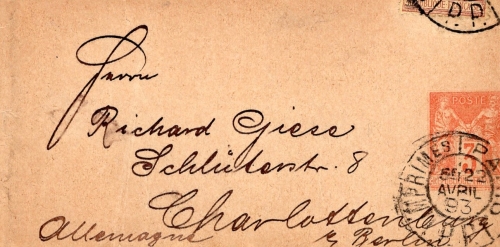 D.P.
Herrn
Richard Giese
Schlüterstr. 8
Charlottenburg
Allemagne b/ Berlin
POSTE
IMPRIMES PA
6E 22
AVRIL
93